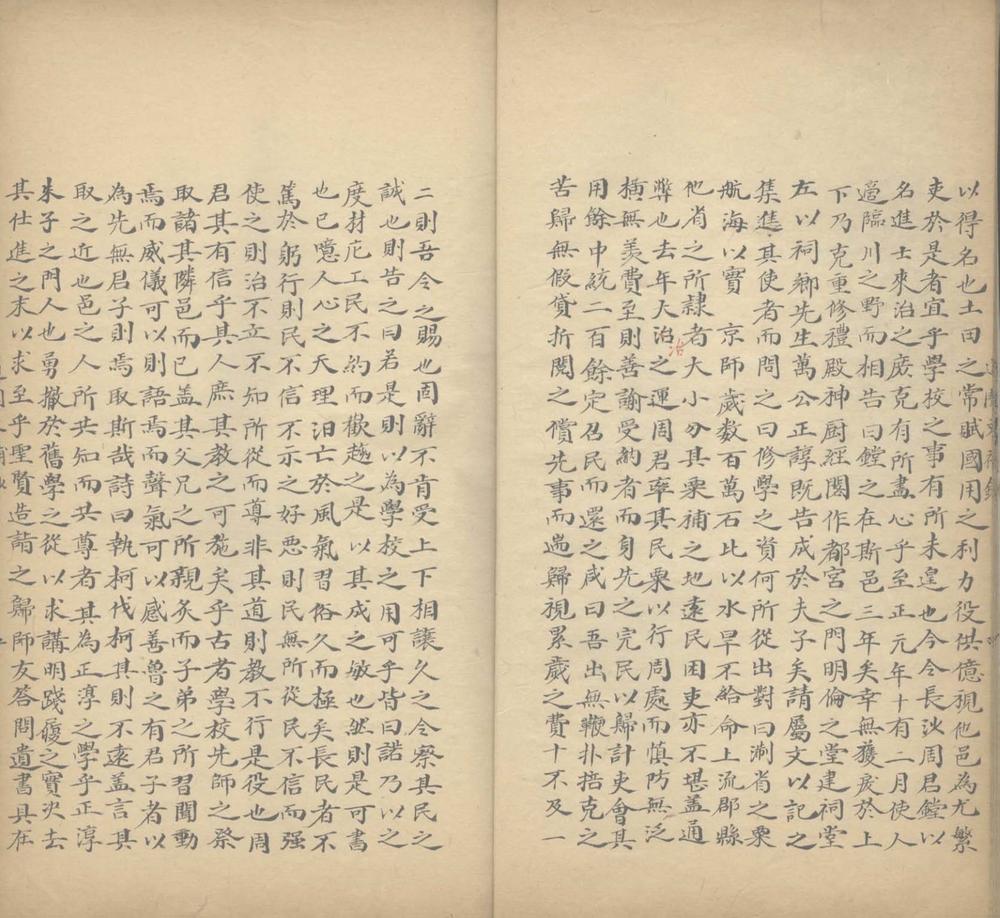 以得名也土田之常賦國用之利力役供億視他邑為尤繁
吏於是者宜乎學校之事有所未遑也今令長沙周君鏜以
名進士來治之廣克有所盡心乎至正元年十有二月使人
適臨川之野而相告曰鏜之在斯邑三年矣幸無獲戾於上
下乃克重修禮殿神厨經閣作都宮之門明倫之堂建祠堂
左以祠鄉先生萬公正諄既告成於夫子矣請屬文以記之
集進其使者而問之曰修學之資何所從出對曰淛省之粟
航海以實 京師歲数百萬石比以水旱不給命上流郡縣
他省之所隸者大小分其粟補之地遠民困吏亦不堪蓋通
弊也去年大治之運周君率其民粟以行周處而慎防無泛
冶
橫無羨費至則善諭受約者而身先之完民以歸計吏會其
用餘中統二百餘定召民而還之咸曰吾出無鞭扑掊克之
苦歸無假貸折閱之償先事而耑歸視累歲之費十不及一
二則吾令之賜也固辭不肯受上下相讓久之令察其民之
誠也則告之曰若是則以為學校之用可乎皆曰諾乃以之
度材庀工民不約而歡趨之是以其成之敏也然則是可書
也已噫人心之天理汩亡於風氣習俗久而極矣長民者不
篤於躬行則民不信不示之好惡則民無所從民不信而强
使之則治不立不知所從而導非其道則教不行是役也周
君其有信乎其人庶其教之可施矣乎古者學校先師之祭
取諸其隣邑而已蓋其父兄之所親炙而子弟之所習聞動
焉而威儀可以則語焉而聲氣可以感善魯之有君子者以
為先無君子則焉取斯哉詩曰執柯伐柯其則不遠蓋言其
取之近也邑之人所共知而共尊者其為正淳之學乎正淳
朱子之門人也勇撤於舊學之從以求講明踐履之實次去
其仕進之末以求至乎聖賢造詣之歸師友答問遺書具在